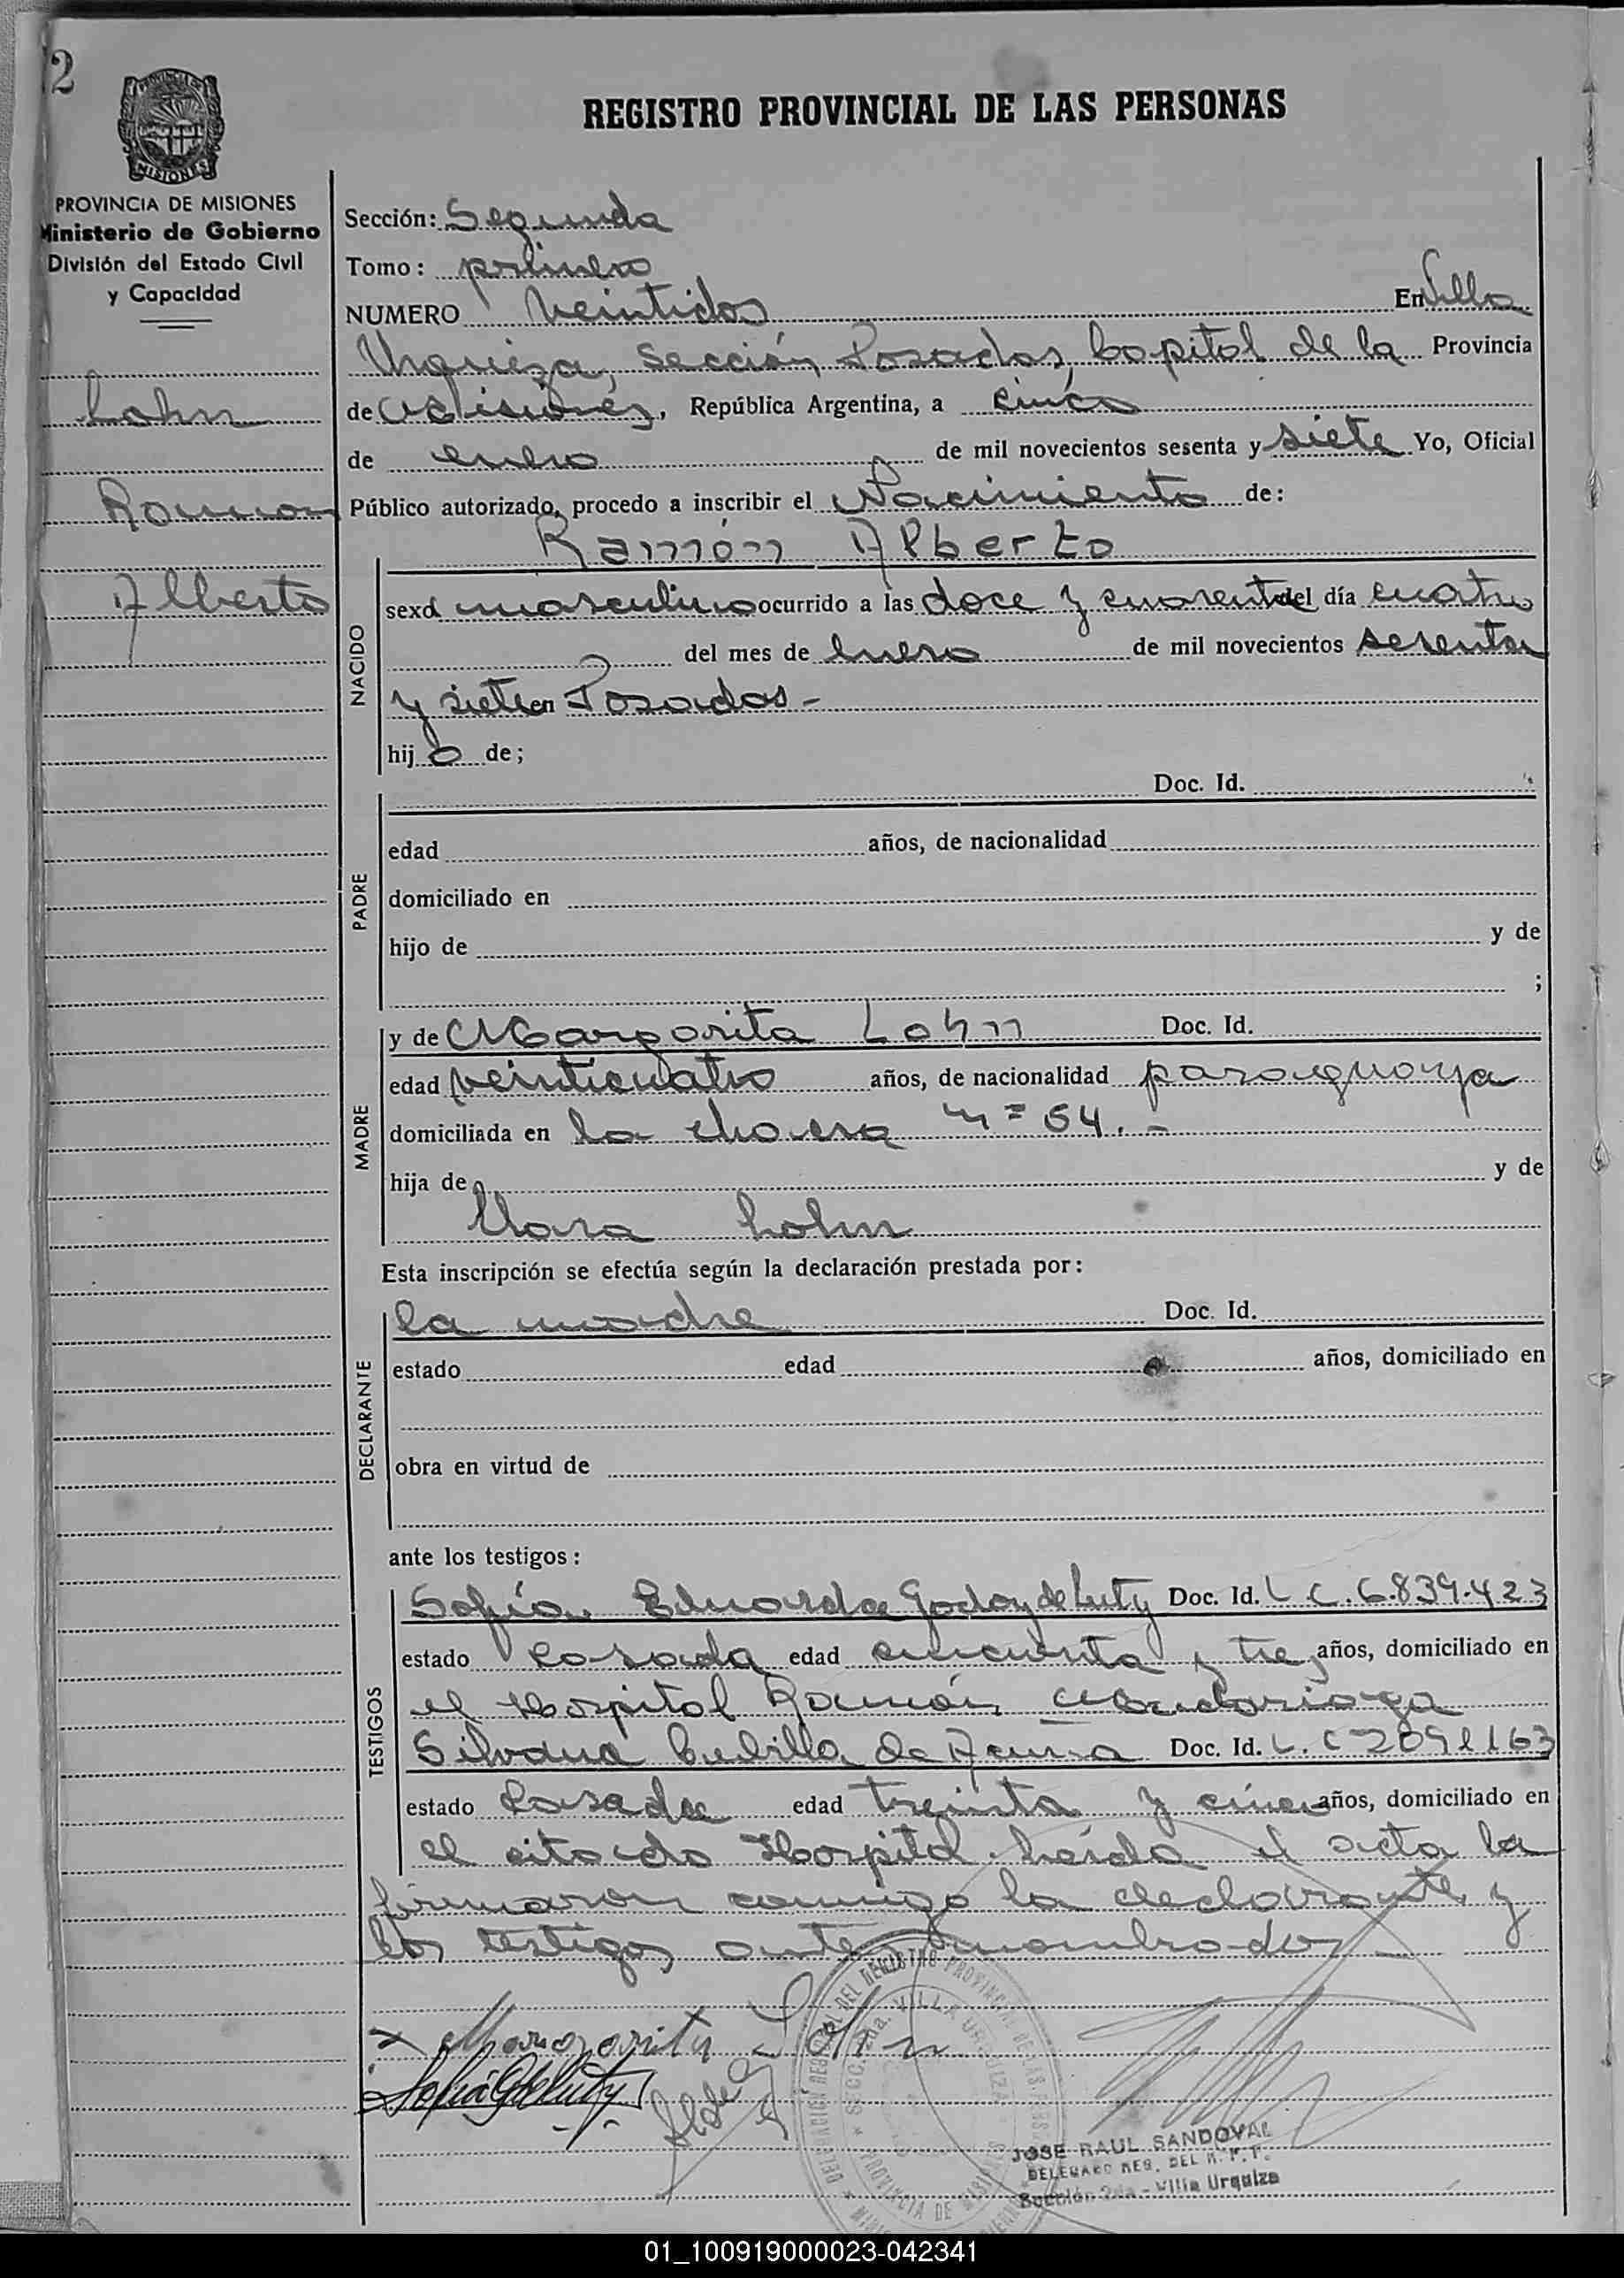 2
REGISTRO PROVINCIAL DE LAS PERSONAS
MISIONES
PROVINCIA DE MISIONES
Ministerio de Gobierno
División del Estado Civil
y Capacidad
Lohn
Ramón
Alberto
Sección: Segunda
Tomo: primero
NUMERO veintidos En Villa
Urquiza, Sección Posadas, Capital de la Provincia
de Misiones, República Argentina, a cinco
de enero de mil novecientos sesenta y siete Yo, Oficial
Público autorizado, procedo a inscribir el Nacimiento de:
Ramón Alberto
NACIDO
sexo masculino ocurrido a las doce y cuarenta del día cuatro
del mes de Enero de mil novecientos sesenta
y siete en Posadas -
hijo de;
PADRE
Doc. Id.
edad años, de nacionalidad
domiciliado en
hijo de y de
;
MADRE
y de Margarita Lohn Doc. Id.
edad veinticuatro años, de nacionalidad paraguaya
domiciliada en la chacra nº 54. -
hija de y de
Clara Lohn
Esta inscripción se efectúa según la declaración prestada por:
DECLARANTE
la madre Doc. Id.
estado edad años, domiciliado en
obra en virtud de
ante los testigos:
TESTIGOS
Sofía Eduarda Godoy de Luty Doc. Id. L C. 6.839.423
estado Casada edad cincuenta y tres años, domiciliado en
el Hospital Ramón Madariaga
Silvana Cubilla de Acuña Doc. Id. L. C 2091163
estado Casada edad treinta y cinco años, domiciliado en
el citado Hospital. Leída el acta la
firmaron conmigo la declarante y
los testigos ante nombrados
Margarita Lohn
Sofia G de Luty
JOSE RAUL SANDOVAL
DELEGADO REG. DEL R. P. P.
Sección 2da - Villa Urquiza
01_100919000023-042341